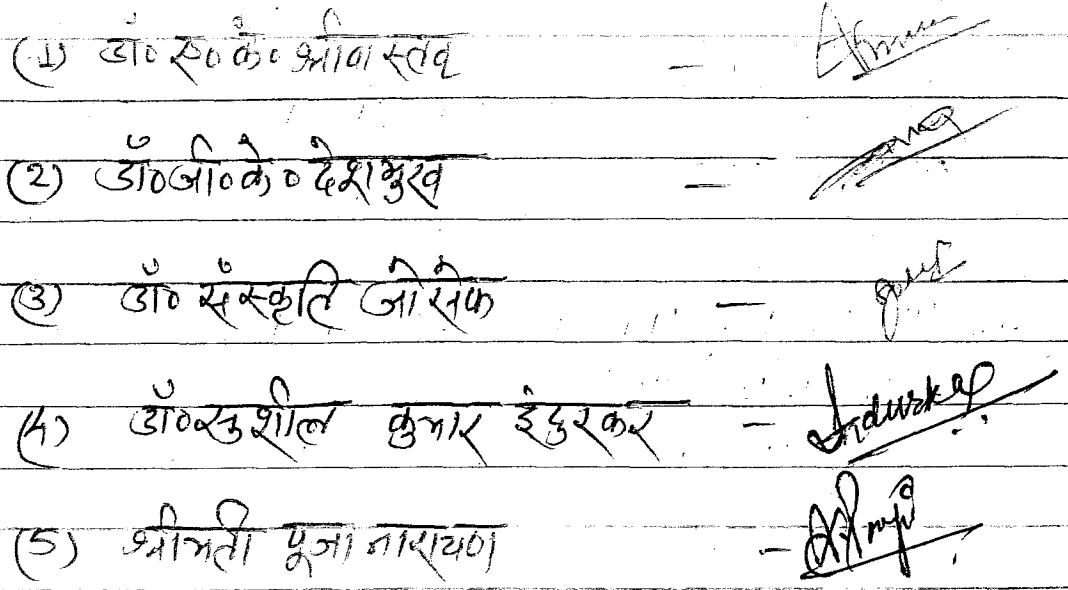 (1) डॉ० ए० के० श्रीवास्तव -
(2) डॉ० जी० के० देशमुख -
(3) डॉ० संस्कृति जोसेफ -
(4) डॉ० सुशील कुमार इंदुरकर - Indurkar
(5) श्रीमती पूजा नारायण -